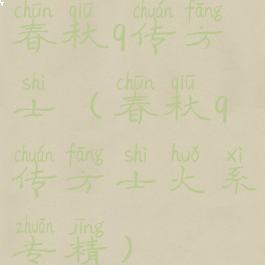 chūn qiū chuán fāng
春秋q传方
shì chūn qiū
士（春秋q
chuán fāng shì huǒ xì
传方士火系
zhuān jīng
专精）